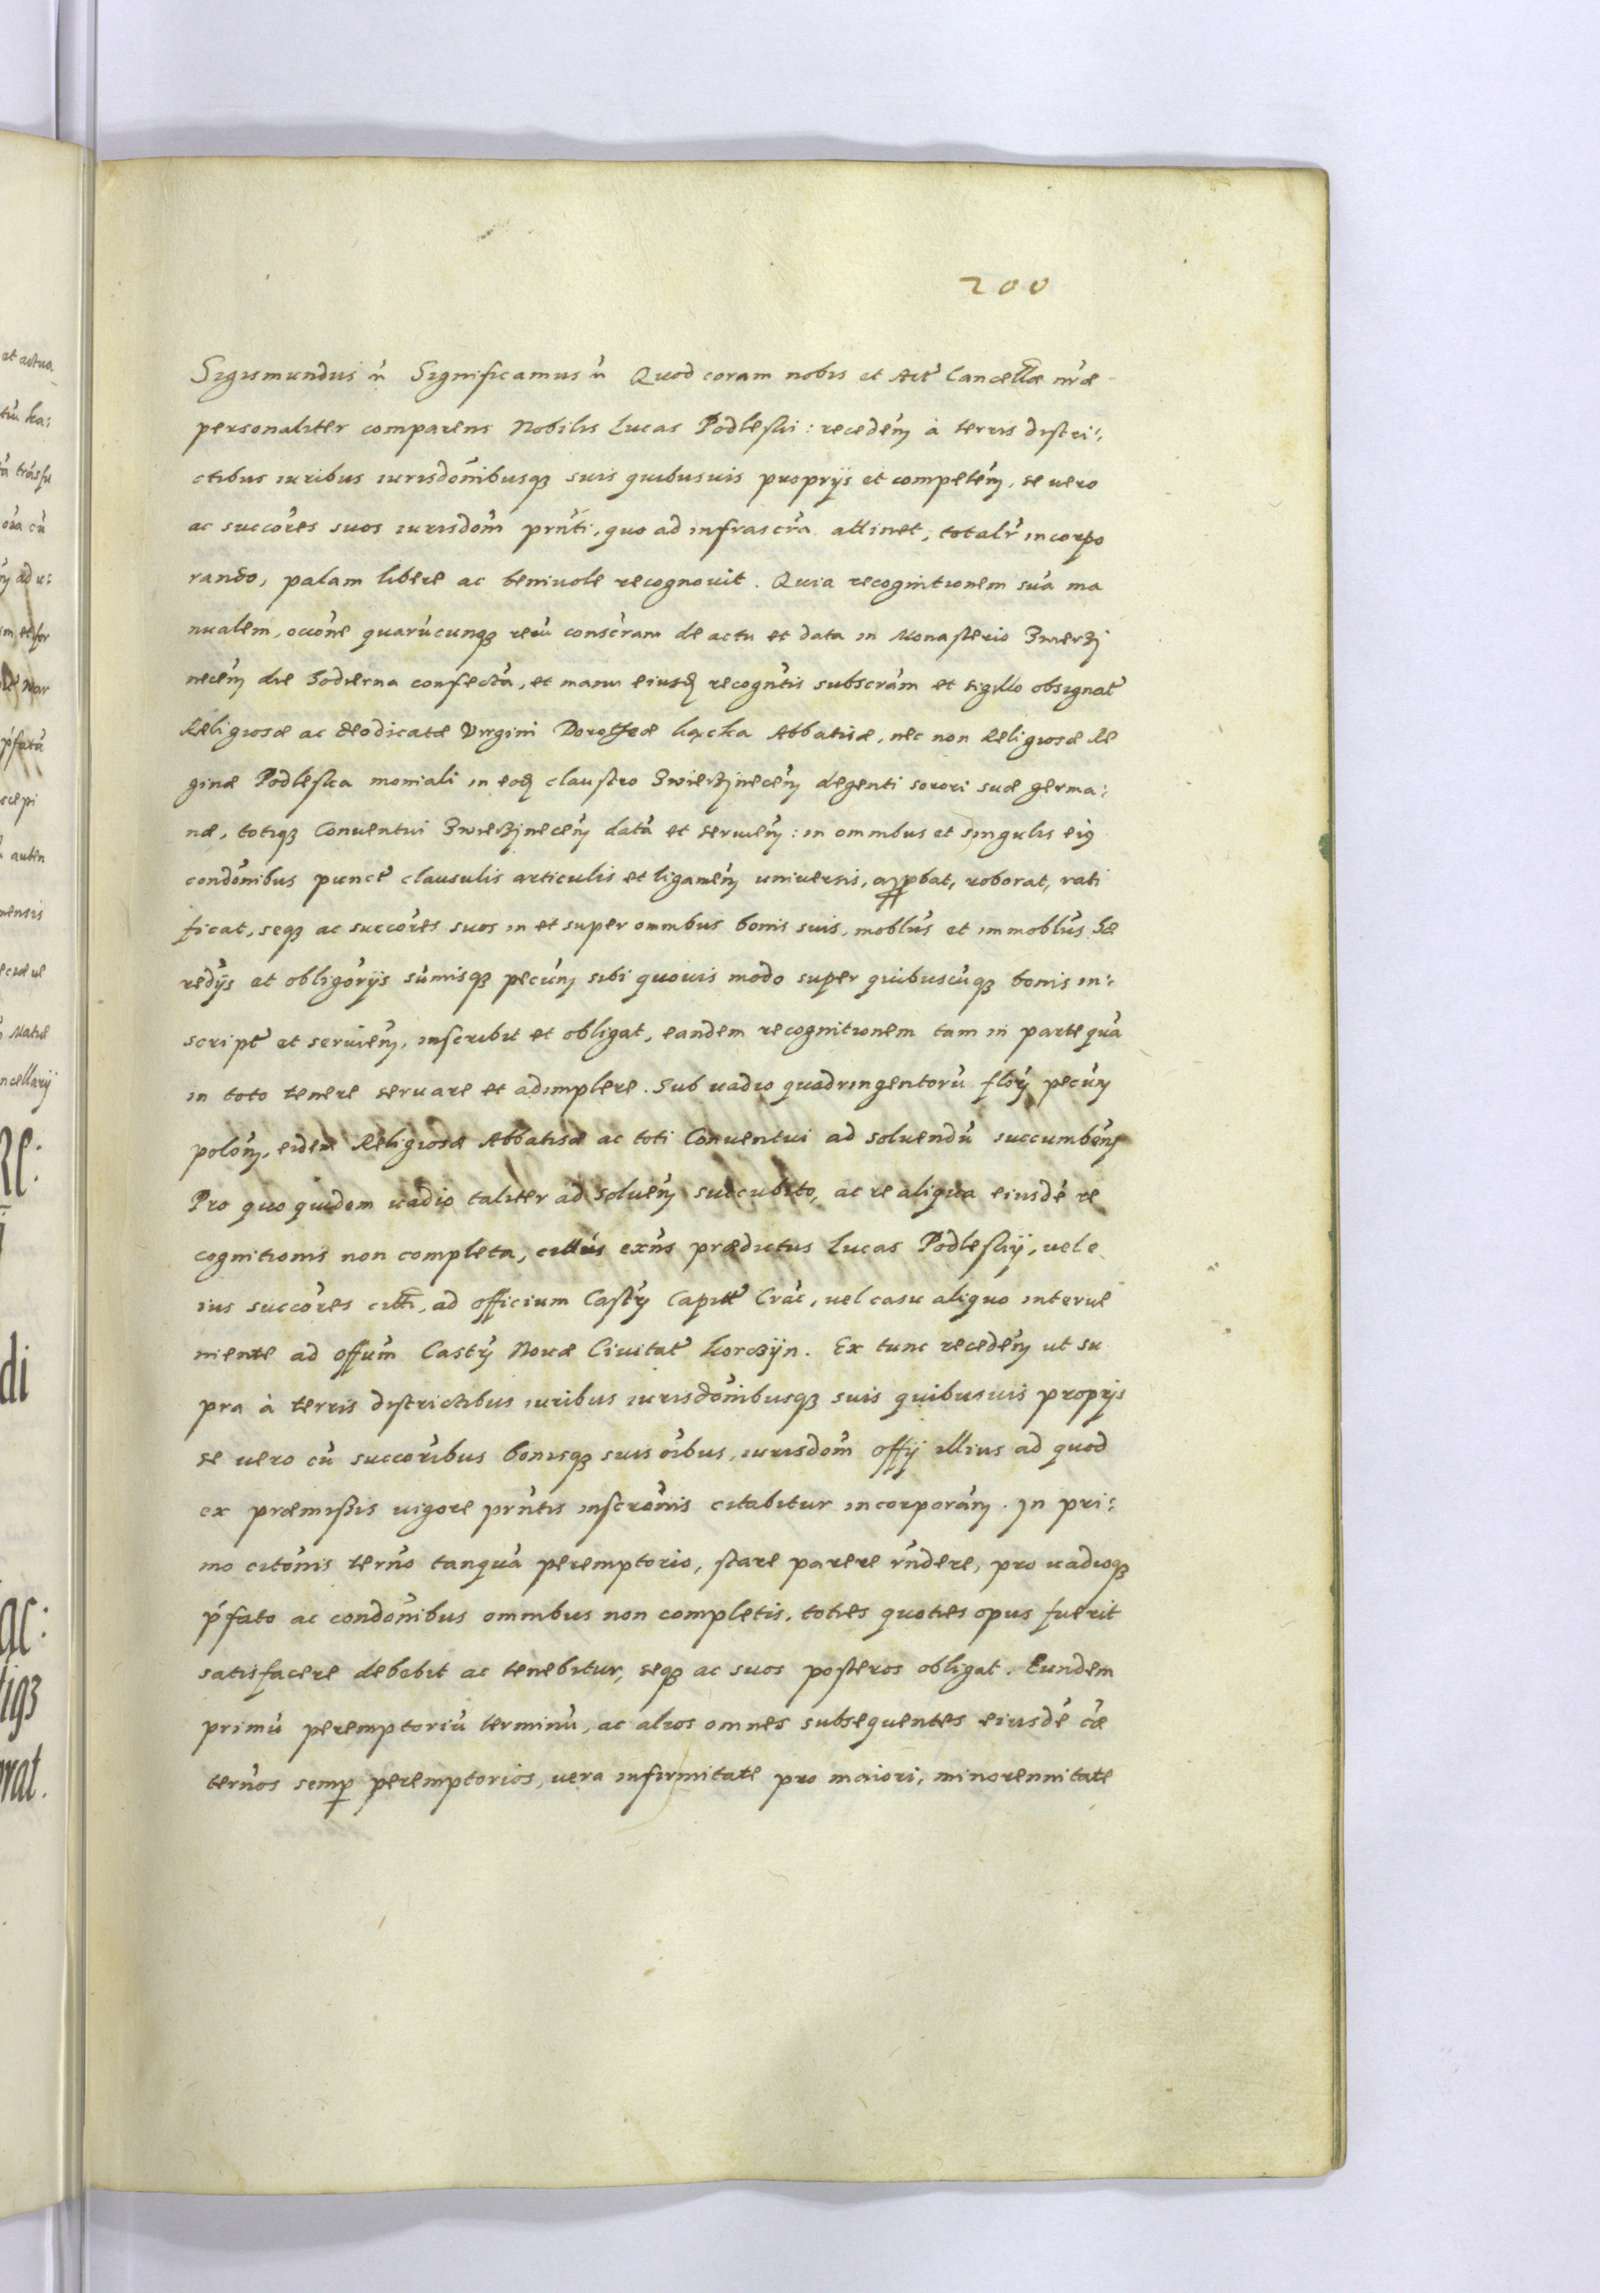 200
Sigismundus etc̃ Significamus etc̃ Quod coram nobis et Act̃ Cancellæ nr̃æ
personaliter comparens Nobilis Lucas Podleski: recedeñ à terris distri:
ctibus iuribus iurisdoñibusq3 suis quibusuis proprijs et competeñ, se vero
ac succores suos iurisdoñi prñti, quo ad infrascra attinet, totalr̃ incorpo
rando, palam libere ac beniuole recognouit. Quia recognitionem suã ma
nualem, occõne quarũcunq3 rerũ conscram de actu et data in Monasterio Zwierzÿ
neceñ die hodierna confectã, et manu eiusd recogñtis subscrãm et sigillo obsignat̃
Religiosæ ac deodicatæ Virgini Dorotheæ Kącka Abbatisæ, nec non Religiosæ Re
ginæ Podleska moniali in eod claustro Zwierzÿneceñ degenti sorori suæ germa:
næ, totiq3 Conuentui Zwierzÿneceñ datã et servieñ: in omnibus et singulis eiq
condõnibus punct̃ clausulis articulis et ligameñ universis, approbat, roborat, rati
ficat, seq3 ac succores suos in et super omnibus bonis suis, moblũs et immoblũs hæ
redÿs et obligorÿs sũmisq3 pecuñ sibi quouis modo super quibuscũq3 bonis in:
script̃ et servieñ, inscribit et obligat, eandem recognitionem tam in parte quã
in toto tenere servare et adimplere. Sub vadio quadringentorũ floŕ pecuñ
poloñ, eidem Religiosæ Abbatisæ ac toti Conuentui ad soluendũ succumbeñ
Pro quo quidem vadio taliter ad solueñ succubito, ac re aliqua eiusdẽ re
cognitionis non completa, cittus exñs prædictus Lucas Podleskij, vel e
ius succores citti, ad officium Castŕ Capitt Crac̃, vel casu aliquo interue
niente ad offum Castŕ Nouæ Ciuitat̃ Korczÿn. Ex tunc recedeñ ut su
pra à terris districtibus iuribus iurisdoñibusq3 suis quibusuis proprÿs
se vero cũ succoribus bonisq3 suis oĩbus, iurisdoñi offÿ illius ad quod
ex præmissis vigore prñtis inscroñis citabitur incorporañ. In pri:
mo citoñis terño tanquã peremptorio, stare parere rñdere, pro vadioq3
p̃fato ac condoñibus omnibus non completis, toties quoties opus fuerit
satisfacere debebit ac tenebitur, seq3 ac suos posteros obligat. Eundem
primũ peremptoriũ terminũ, ac alios omnes subsequentes eiusdẽ cæ
terños semp peremptorios, vera infirmitate pro maiori, minorennitate